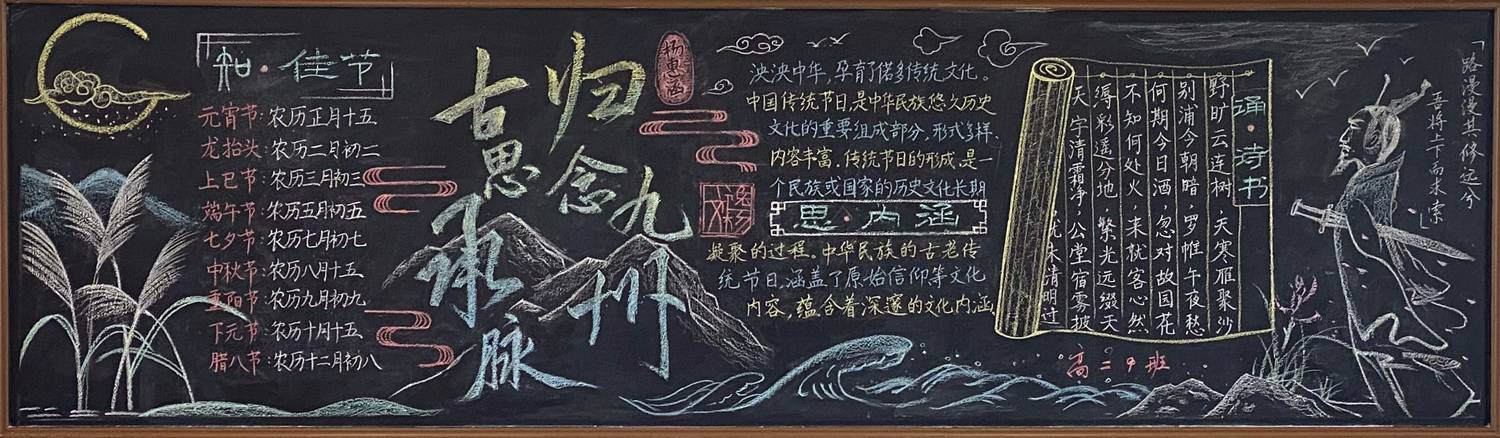 知·佳节
元宵节:农历正月十五
龙抬头:农历二月初二
上巳节:农历三月初三
端午节:农历五月初五
七夕节:农历七月初七
中秋节:农历八月十五
重阳节:农历九月初九
下元节:农历十月十五
腊八节:农历十二月初八
古思承脉
归念九州
杨惠涵
泱泱中华,孕育了诸多传统文化。
中国传统节日,是中华民族悠久历史
文化的重要组成部分,形式多样、
内容丰富。传统节日的形成,是一
个民族或国家的历史文化长期
思·内涵
凝聚的过程。中华民族的古老传
统节日,涵盖了原始信仰等文化
内容,蕴含着深邃的文化内涵
诵·诗书
野旷云连树,天寒雁聚沙
别浦今朝暗,罗帷午夜愁
何期今日酒,忽对故园花
不知何处火,来就客心然
缛彩遥分地,繁光远缀天
天宇清霜净,公堂宿雾披
未清明过
高二9班
「路漫漫其修远兮
吾将上下而求索」